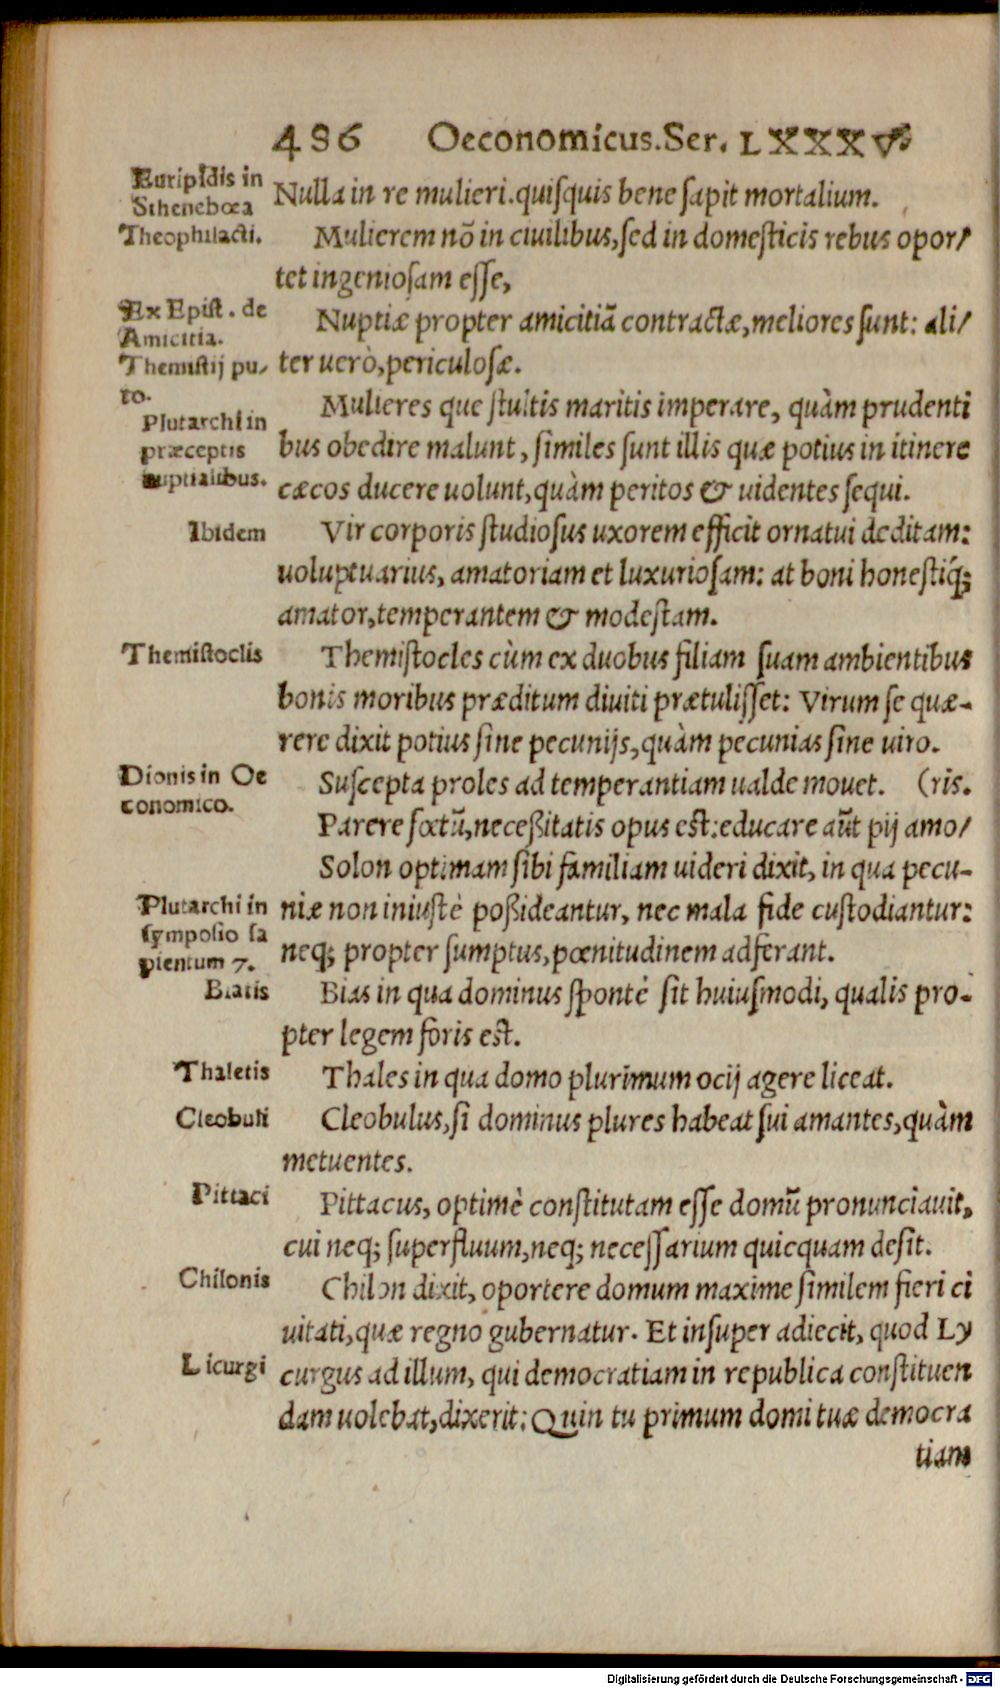 486 Oeconomicus.Ser. LXXXV
Euripidis in
Stheneboea
Nulla in re mulieri.quiſquis bene ſapit mortalium.
Theophilacti.
Mulierem nō in ciuilibus,ſed in domeſticis rebus opor/
tet ingenioſam eſſe,
Ex Epist. de
Amicitia.
Nuptiæ propter amicitiā contractæ,meliores ſunt: ali/
Themistij pu/
to.
ter uerò,periculoſæ.
Plutarchi in
præceptis
nuptialibus.
Mulieres que ſtultis maritis imperare, quàm prudenti
bus obedire malunt, ſimiles ſunt illis quæ potius in itinere
cæcos ducere uolunt,quàm peritos & uidentes ſequi.
Ibidem
Vir corporis ſtudioſus uxorem efficit ornatui deditam:
uoluptuarius, amatoriam et luxurioſam: at boni honeſtiq́;
amator,temperantem & modeſtam.
Themistoclis
Themiſtocles cùm ex duobus filiam ſuam ambientibus
bonis moribus præditum diuiti prætuliſſet: Virum ſe quæ-
rere dixit potius ſine pecunijs,quàm pecunias ſine uiro.
Dionis in Oe
conomico.
Suſcepta proles ad temperantiam ualde mouet. (ris.
Parere fœtū,neceßitatis opus est:educare aūt pij amo/
Solon optimam ſibi familiam uideri dixit, in qua pecu-
Plutarchi in
symposio sa
pientum 7.
niæ non iniuſtè poßideantur, nec mala fide cuſtodiantur:
neq; propter ſumptus,pœnitudinem adferant.
Biatis
Bias in qua dominus ſponte ſit huiuſmodi, qualis pro-
pter legem foris eſt.
Thaletis
Thales in qua domo plurimum ocij agere liceat.
Cleobuli
Cleobulus,ſi dominus plures habeat ſui amantes,quàm
metuentes.
Pittaci
Pittacus, optimè conſtitutam eſſe domū pronunciauit,
cui neq; ſuperfluum,neq; neceſſarium quicquam deſit.
Chilonis
Chilon dixit, oportere domum maxime ſimilem fieri ci
uitati,quæ regno gubernatur. Et inſuper adiecit, quod Ly
Licurgi
curgus ad illum, qui democratiam in republica conſtituen
dam uolebat,dixerit: Quin tu primum domi tuæ democra
tiam
Digitalisierung gefördert durch die Deutsche Forschungsgemeinschaft - DFG